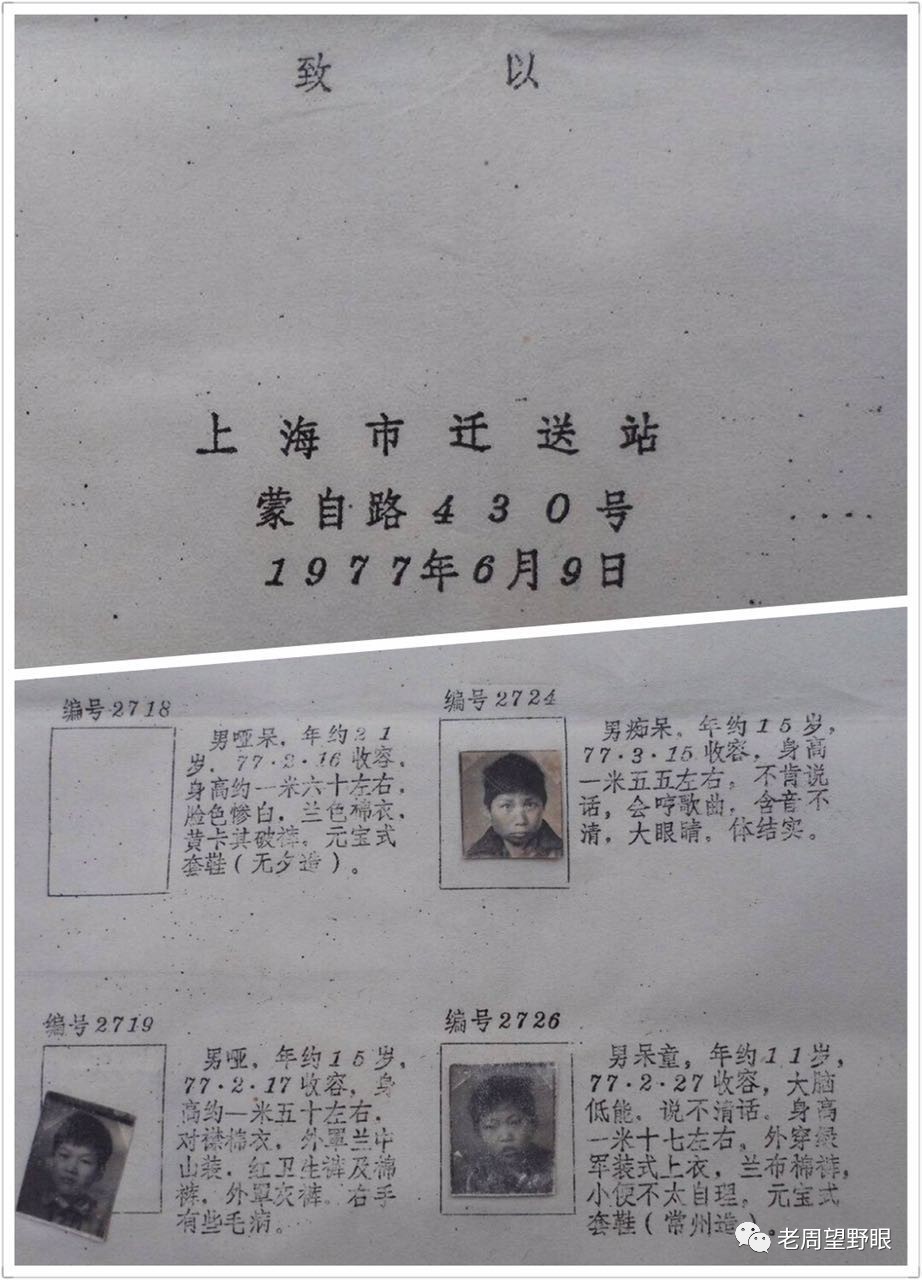 致以
上海市迁送站
蒙自路430号
1977年6月9日
编号2718
男哑呆，年约21
岁，77·2·16收容，
身高约一米六十左右，
脸色惨白，兰色棉衣，
黄卡其破裤，元宝式
套鞋（无夕造）。
编号2724
男痴呆，年约15岁，
77·3·15收容，身高
一米五五左右，不肯说
话，会哼歌曲，含音不
清，大眼睛，体结实。
编号2719
男哑，年约15岁，
77·2·17收容，身
高约一米五十左右，
对襟棉衣，外罩兰中
山装，红卫生裤及棉
裤，外罩灰裤。右手
有些毛病。
编号2726
男呆童，年约11岁，
77·2·27收容，大脑
低能，说不清话，身高
一米十七左右，外穿绿
军装式上衣，兰布棉裤，
小便不太自理，元宝式
套鞋（常州造）。
老周望野眼